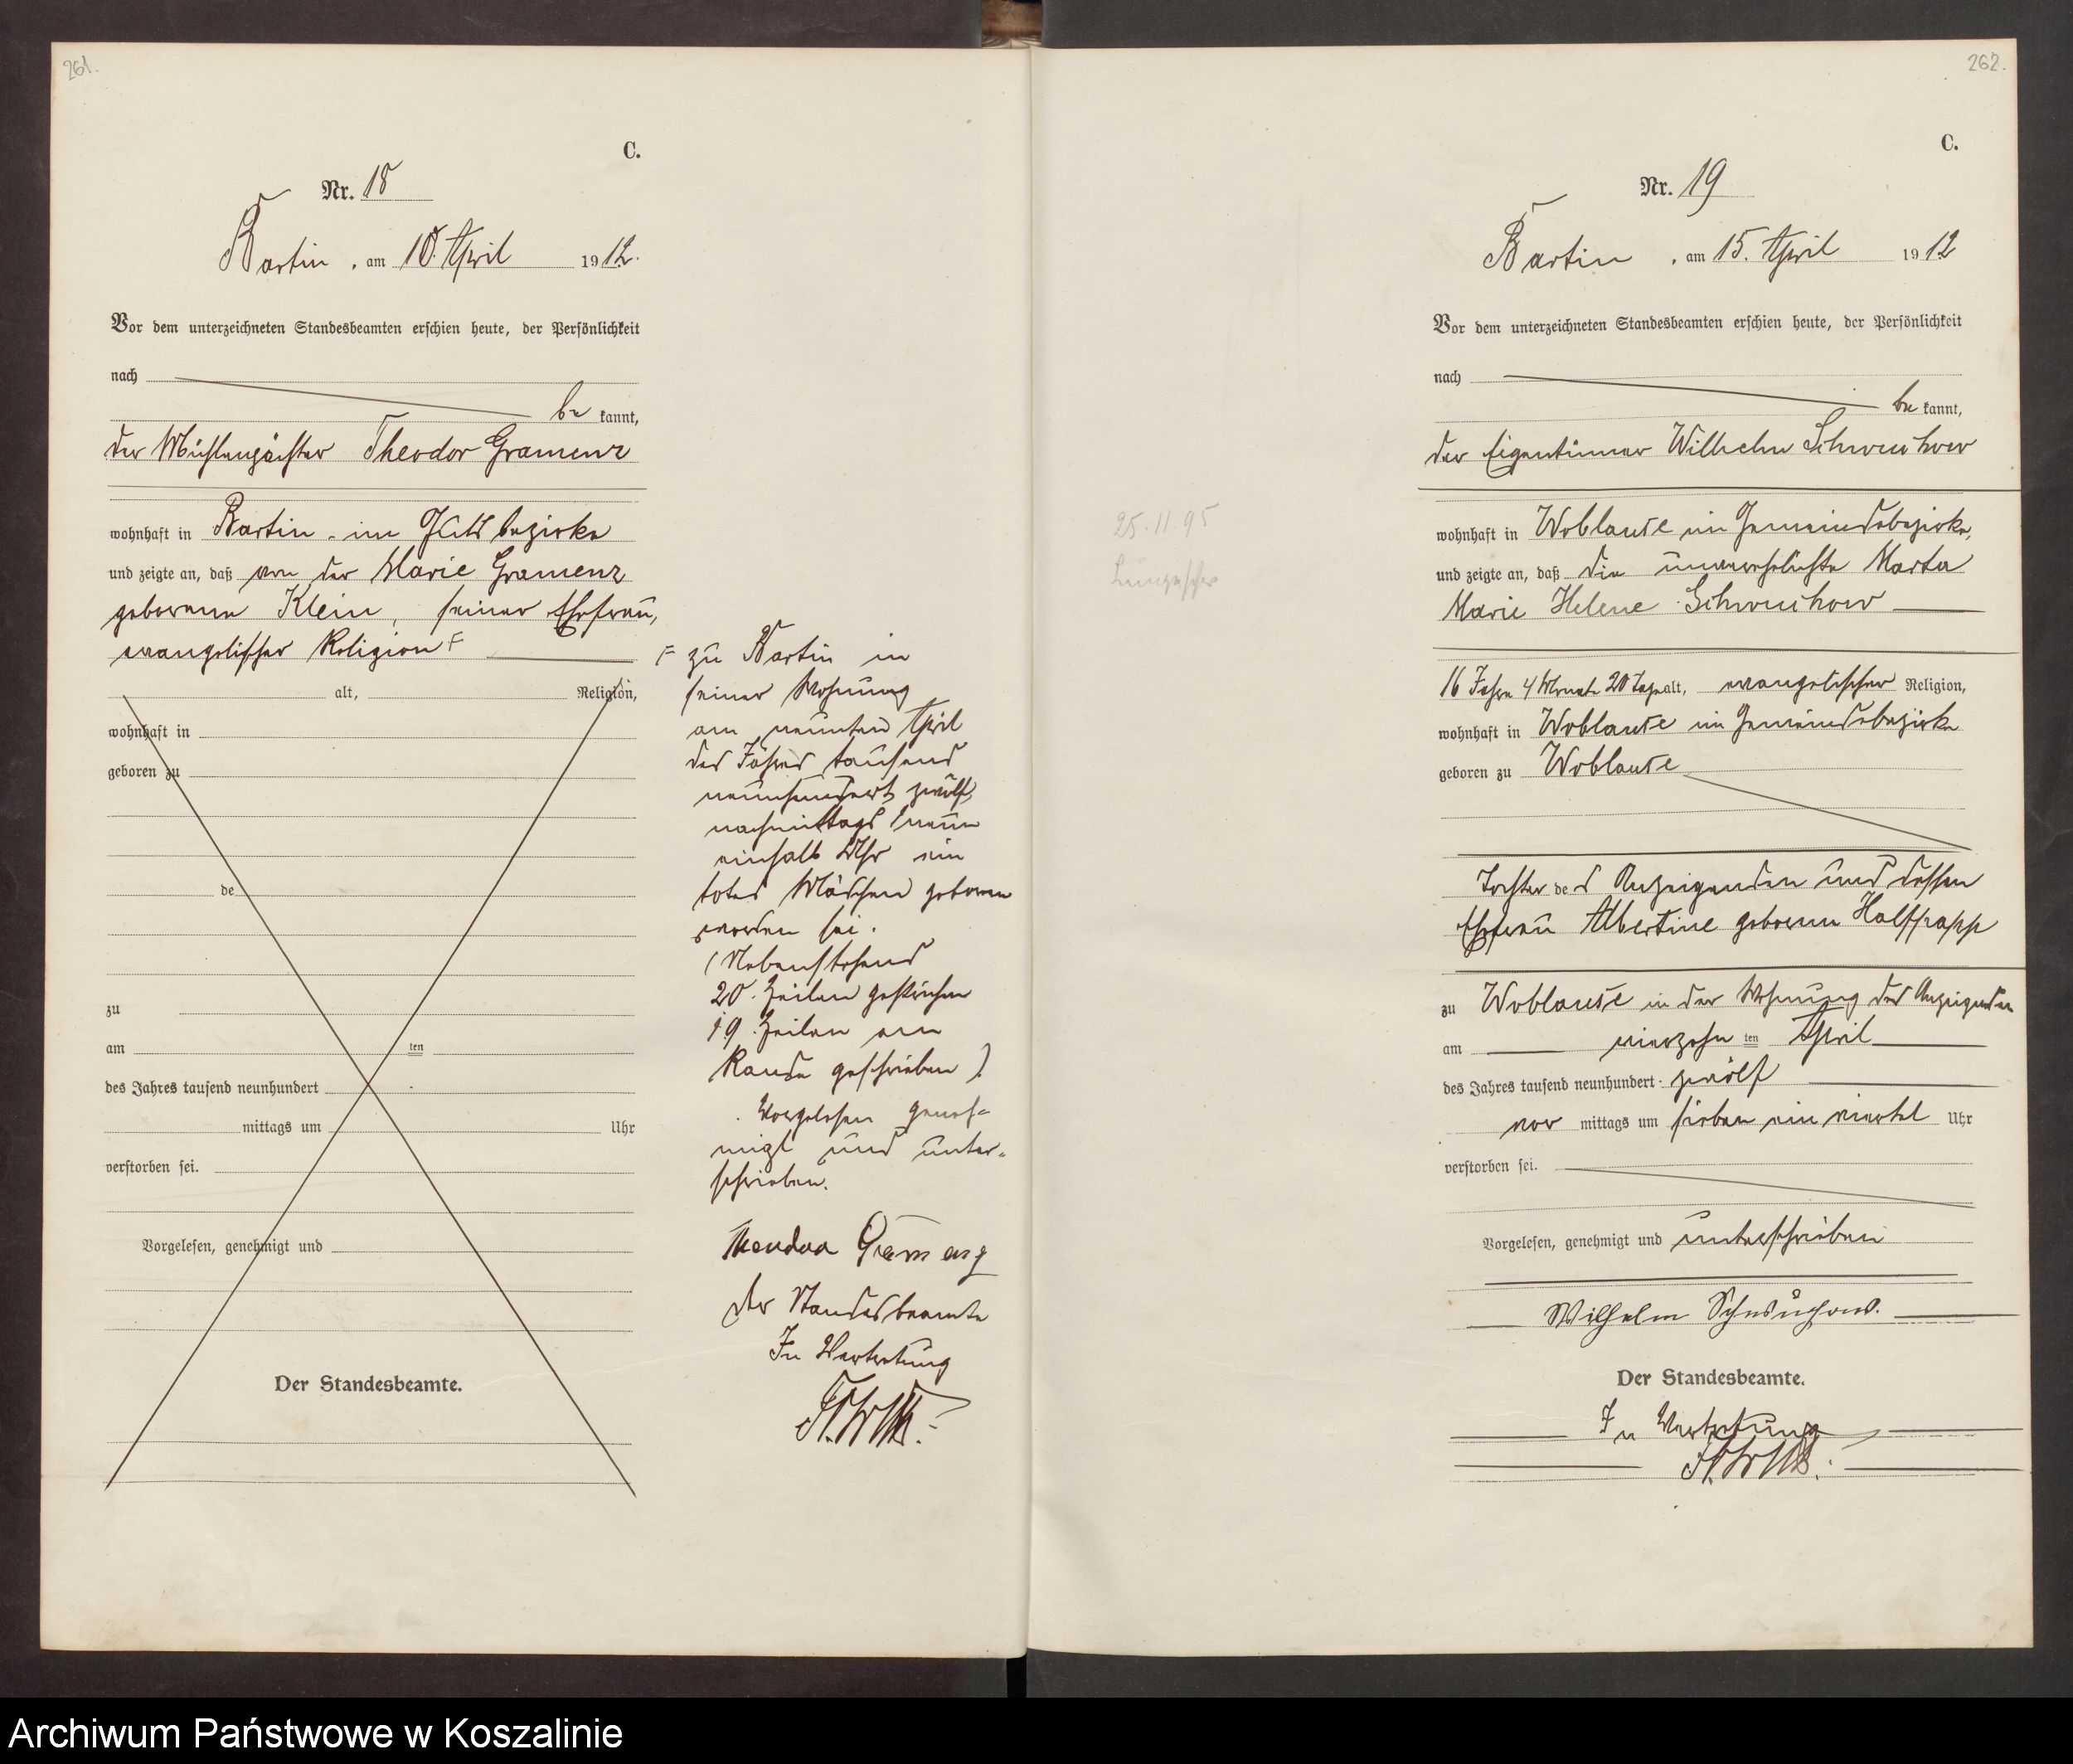 261.
C.
Nr. 18
Bartin, am 10. April 1912.
Vor dem unterzeichneten Standesbeamten erschien heute, der Persönlichkeit
nach
be kannt,
der Mühlenpächter Theodor Gramenz
wohnhaft in Bartin im Gutsbezirke
und zeigte an, daß von der Marie Gramenz
geborenen Klein, seiner Ehefrau,
evangelischer Religion F
alt, Religion,
wohnhaft in
geboren zu
de
zu
am ten
des Jahres tausend neunhundert
mittags um Uhr
verstorben sei.
Vorgelesen, genehmigt und
Der Standesbeamte.
F zu Bartin in
seiner Wohnung
am neunten April
des Jahres tausend
neunhundert zwölf,
nachmittags neun
einhalb Uhr ein
totes Mädchen geboren
worden sei.
(Nebenstehend
20 Zeilen gestrichen
19 Zeilen am
Rande geschrieben)
Vorgelesen geneh=
migt und unter=
schrieben.
Theodor Gramenz
Der Standesbeamte
In Vertretung
262.
C.
Nr. 19
Bartin, am 15. April 1912
Vor dem unterzeichneten Standesbeamten erschien heute, der Persönlichkeit
nach
be kannt,
der Eigentümer Wilhelm Schwuchow
wohnhaft in Woblanse im Gemeindebezirke,
und zeigte an, daß die unverehelichte Marta
Marie Helene Schwuchow
16 Jahre 4 Monate 20 Tage alt, evangelischer Religion,
wohnhaft in Woblanse im Gemeindebezirke
geboren zu Woblanse
25.11.95
Tochter des Anzeigenden und dessen
Ehefrau Albertine geborene Halfpapp
zu Woblanse in der Wohnung des Anzeigenden
am vierzehn ten April
des Jahres tausend neunhundert zwölf
vor mittags um sieben ein viertel Uhr
verstorben sei.
Vorgelesen, genehmigt und unterschrieben
Wilhelm Schwuchow.
Der Standesbeamte.
In Vertretung
Archiwum Państwowe w Koszalinie